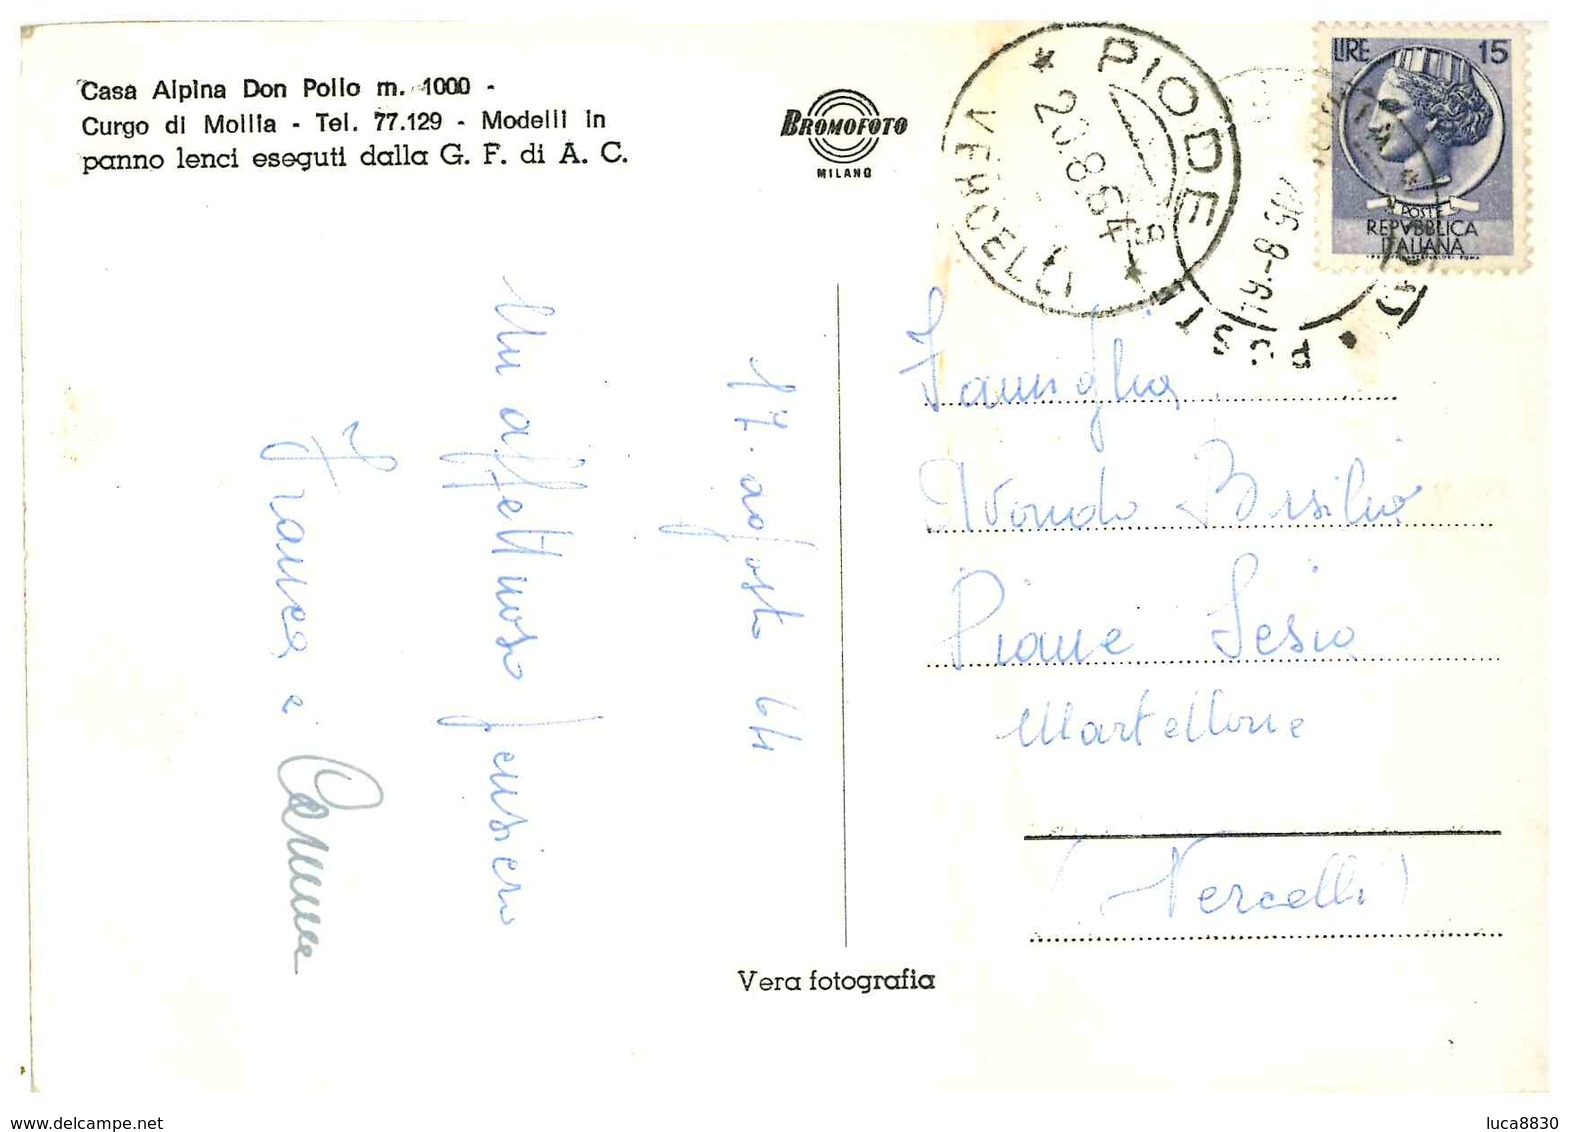 Casa Alpina Don Pollo m. 1000 -
Curgo di Mollia - Tel. 77.129 - Modelli in
panno lenci eseguti dalla G. F. di A. C.
BROMOFOTO
MILANO
PIODE
VERCELLI
20.8.64
LIRE 15
POSTE
REPVBBLICA
ITALIANA
17. agosto 64
Un affettuoso pensiero
Franca e
Famiglia
Avondo Basilio
Piane Sesia
(Vercelli)
Vera fotografia
www.delcampe.net
luca8830